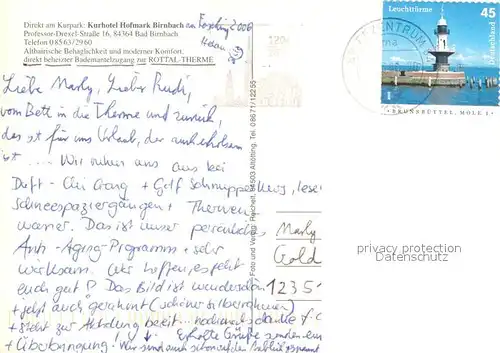 Direkt am Kurpark: Kurhotel Hofmark Birnbach am Fasching 2006
Professor-Drexel-Straße 16, 84364 Bad Birnbach
Telefon 08563/2960
Altbairische Behaglichkeit und moderner Komfort,
direkt beheizter Bademantelzugang zur ROTTAL-THERME
Liebe Marly, Lieber Rudi,
vom Bett in die Therme und zurück,
das ist für uns Urlaub, der auch erholsam
ist .... Wir ruhen uns aus bei
Duft-Chi Gong + Golf Schnupperkurs, lesen
Schneespaziergängen + Thermen
wasser. Das ist unser persönliches
Anti-Aging-Programm + sehr
wirksam. Wir hoffen, es geht
euch gut! Das Bild ist wunderschön
+ jetzt auch gerahmt (schöner Silberrahmen)
+ steht zur Abholung bereit... nochmals danke f. d.
Überbringung. Erholte Grüße senden euch
Wir sind auch schon auf
Foto und Verlag Reichelt, 84503 Altötting, Tel. 08671/12255
Leuchttürme
45
Deutschland
BRUNSBÜTTEL, MOLE 1
BRIEFZENTRUM
Marly
Gold
12351
privacy protection
Datenschutz